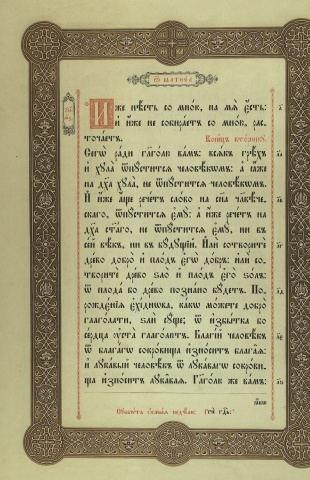 Ѿ МАТѲЕА
Иже нѣсть со мною, на мѧ єсть:
и иже не собираетъ со мною, рас-
точаетъ. Конецъ вторникꙋ.
Сегѡ ради глаголю вамъ: всѧкъ грѣхъ
и хꙋла ѿпꙋстится человѣкѡмъ: а ꙗже
на дх҃а хꙋла, не ѿпꙋстится человѣкѡмъ.
И иже аще речетъ слово на сн҃а члв҃ѣче-
скаго, ѿпꙋстится ємꙋ: а иже речетъ на
дх҃а ст҃аго, не ѿпꙋстится ємꙋ, ни въ
сей вѣкъ, ни въ бꙋдꙋщїй. Или сотворите
древо добро и плодъ єгѡ добръ: или со-
творите древо ѕло и плодъ єгѡ ѕолъ:
ѿ плода бо древо познано бꙋдетъ. По-
рождєнїѧ єхїднѡва, какѡ можете добро
глаголати, ѕли сꙋще; ѿ избытка бо
сердца ᲂуста глаголютъ. Благїй человѣкъ
ѿ благагѡ сокровища износитъ благаѧ:
и лꙋкавый человѣкъ ѿ лꙋкавагѡ сокрови-
ща износитъ лꙋкаваѧ. Глаголю же вамъ: